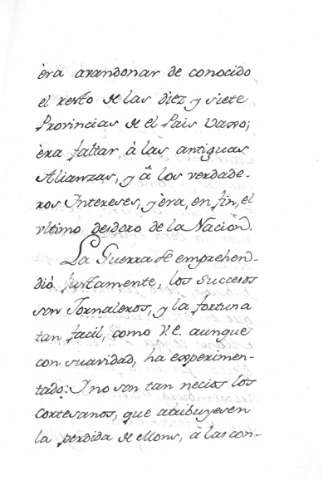 èra avandonar de conocido
el resto de las diez y siete
Provincias de el Pais Vaxo;
èra faltar à las antiguas
Alianzas, y à los verdade-
ros Intereses, y èra, en fin, el
vltimo desdoro de la Nacion.
La Guerra se emprehen-
diò justamente, los successos
son Jornaleros, y la fortuna
tan facil, como V.E. aunque
con suavidad, ha experimen-
tado: I no son tan necios los
Cortesanos, que atribuyesen
la perdida de Mons, à las con-